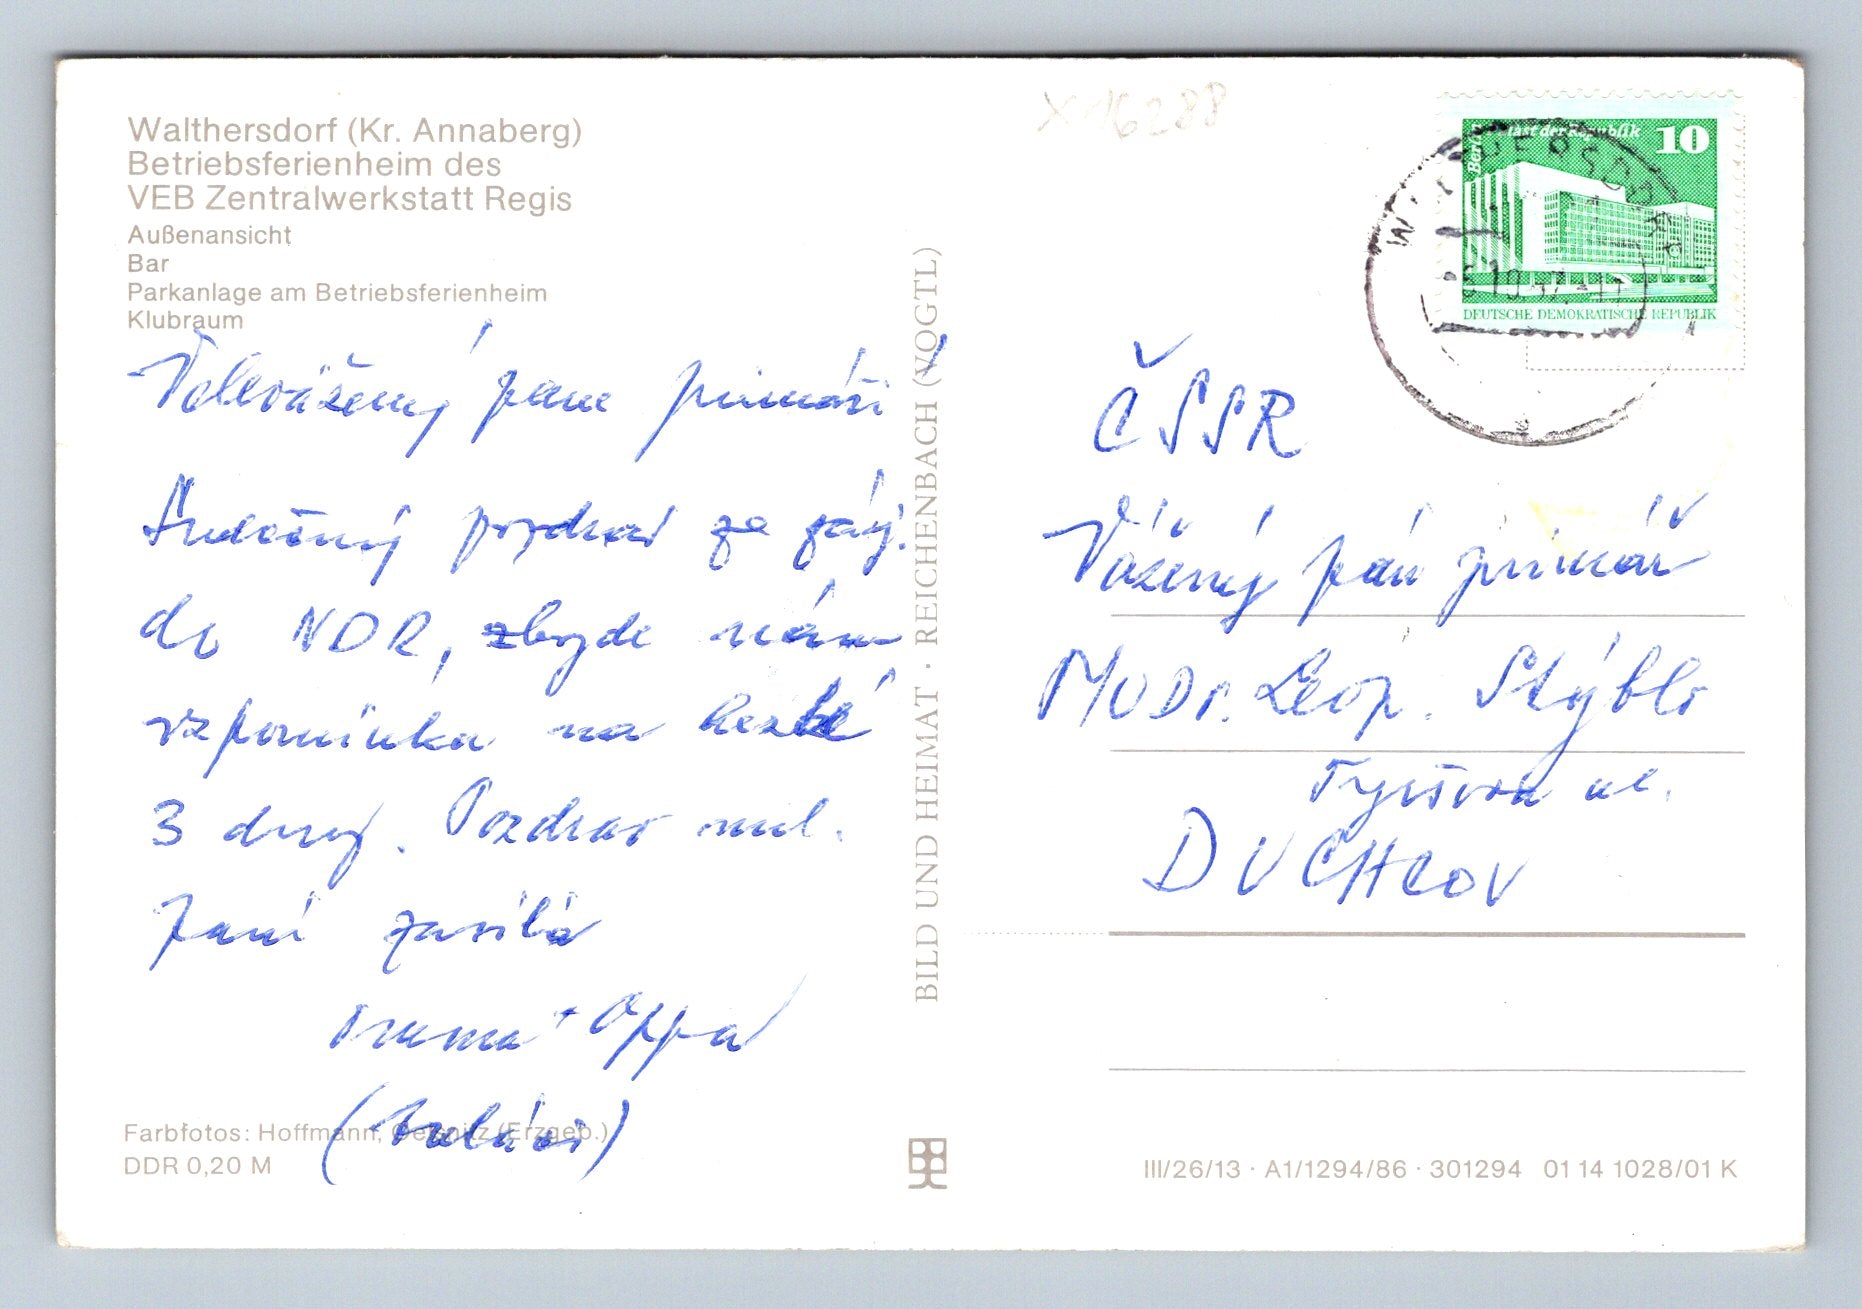 Walthersdorf (Kr. Annaberg)
Betriebsferienheim des
VEB Zentralwerkstatt Regis
Außenansicht
Bar
Parkanlage am Betriebsferienheim
Klubraum
Velevážený pane primáři
Srdečný pozdrav ze záj.
do NDR, zbyde nám
vzpomínka na hezké
3 dny. Pozdrav mil.
Paní zasílá
Oppa
Farbfotos: Hoffmann, Oelsnitz (Erzgeb.)
DDR 0,20 M
BILD UND HEIMAT · REICHENBACH (VOGTL)
X 16288
Berlin Palast der Republik 10
DEUTSCHE DEMOKRATISCHE REPUBLIK
WALTHERSDORF
ČSSR
Vážený pán primář
MUDr. Leop. Stýblo
Tyršova ul.
DUCHCOV
III/26/13 · A1/1294/86 · 301294 01 14 1028/01 K